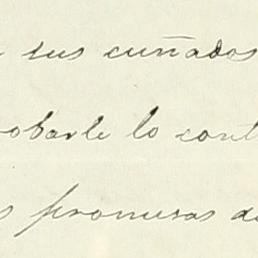 sus cuñados
obarle lo cont
s promesas de